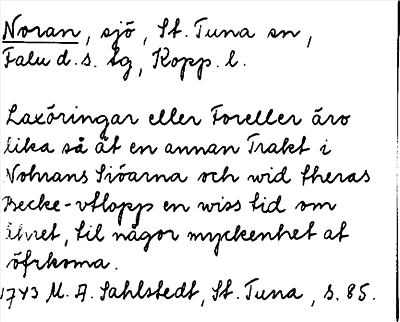 Noran, sjö, St. Tuna sn,
Falu d.s. tg, Kopp. l.
Laxöringar eller Foreller äro
lika så åt en annan Trakt i
Nohrans Siöarna och wid theras
Becke-vtlopp en wiss tid om
åhret, til någor myckenhet at
öfrkoma.
1743 M. A. Sahlstedt, St. Tuna, s. 85.